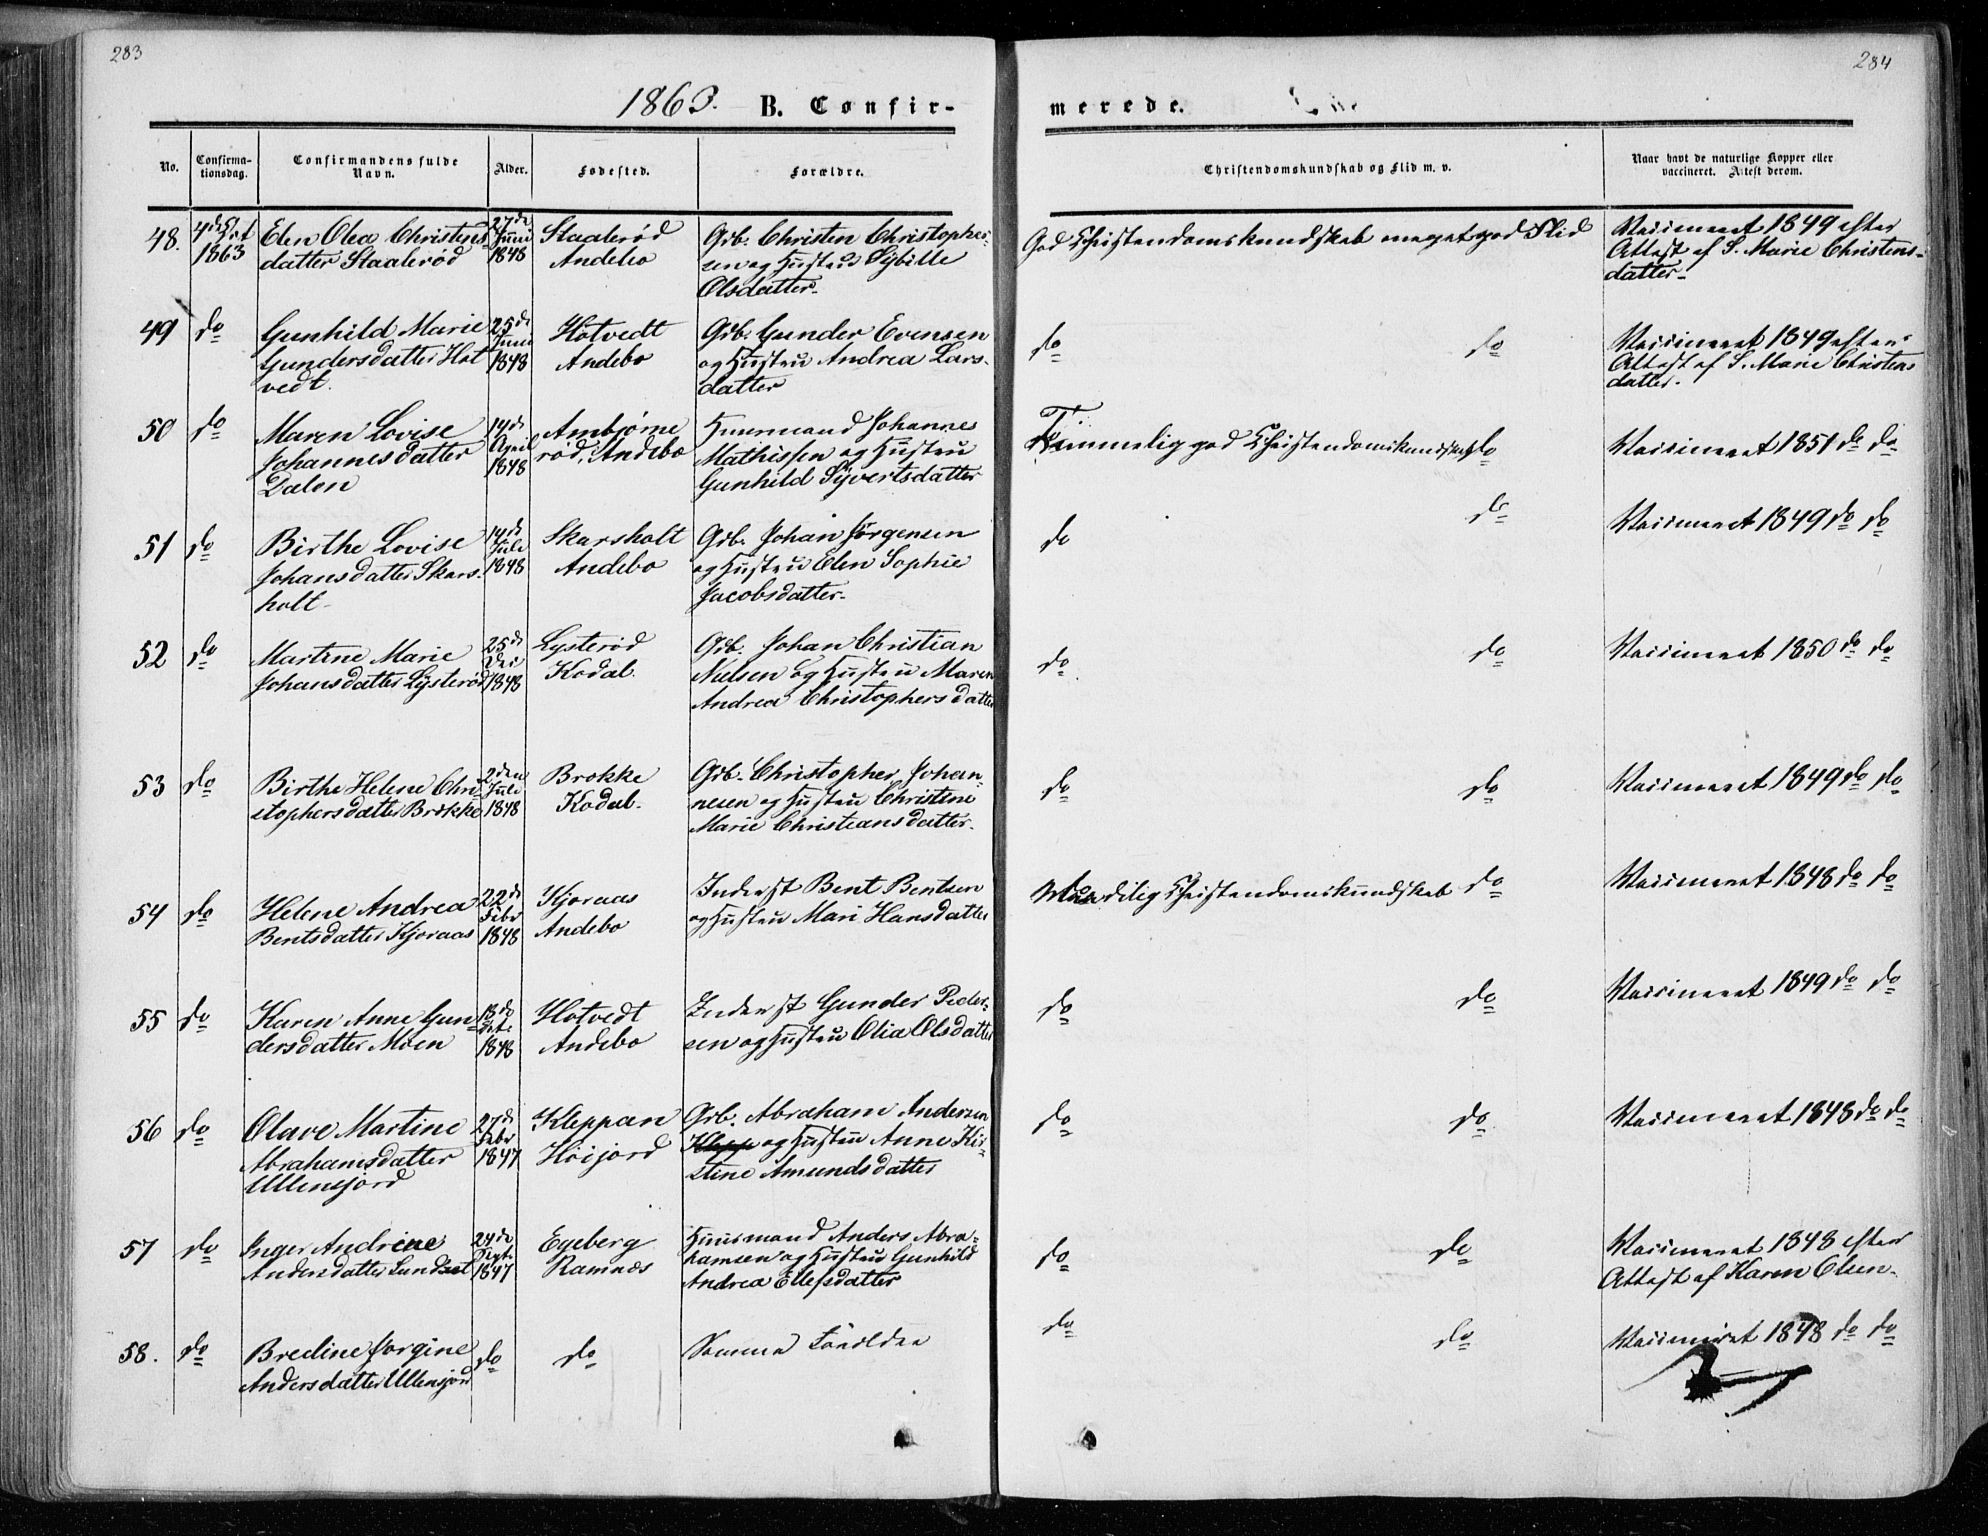 283
284
1863. B. Confir-
merede.
No.
Confirma-
tionsdag.
Confirmandens fulde
Navn.
Alder.
Fødested.
Forældre.
Christendomskundskab og Flid m. v.
Naar havt de naturlige Kopper eller
vaccineret. Attest derom.
48. 4de Oct 1863
Elen Olea Christens-
datter Staalerød
27de Juni 1848
Staalerød
Andebo
Grb. Christen Christopher-
sen og Hustru Sybille
Olsdatter-
God Christendomskundskab meget god Flid
Vassineret 1849 efter
Attest af S. Marie Christens-
datter-
49 do
Gunhild Marie
Gundersdatter Hot
vedt.
25de Juni 1848
Hotvedt
Andebo
Grb. Gunder Evensen
og Hustru Andrea Lars-
datter
do do
Vassineret 1849 efter
Attest af S. Marie Christens
datter-
50 do
Maren Lovise
Johannesdatter
Dalen
14de April 1848
Ambjørne
rød, Andebo
Huusmand Johannes
Mathissen og Hustru
Gunhild Syvertsdatter
Temmelig god Christendomskundskab do
Vassineret 1851 do do
51 do
Birthe Lovise
Johansdatter Skars-
holt-
14de Juli 1848
Skarsholt
Andebo
Grb. Johan Jørgensen
og Hustru Elen Sophie
Jacobsdatter-
do do
Vassineret 1849 do do
52 do
Martine Marie
Johansdatter Lysterød
25de 1848
Lysterød
Kodal.
Grb. Johan Christian
Nielsen og Hustru Maren
Andrea Christophersdatter
do do
Vassineret 1850 do do
53 do
Birthe Helene Chri
stophersdatter Brokke
2den Juli 1848
Brokke
Kodal-
Grb. Christopher Johan-
nesen og Hustru Christine
Marie Christiansdatter-
do do
Vassineret 1849 do do
54 do
Helene Andrea
Bentsdatter Kjoraas
22de Febr 1848
Kjoraas
Andebo
Inderst Bent Bentsen
og Hustru Mari Hansdatter
Maadelig Christendomskundskab do
Vassineret 1848 do do
55 do
Karen Anne Gun-
dersdatter Moen
1848
Hotvedt
Andebo
Inderst Gunder Peder-
sen og Hustru Olia Olsdatter
do do
Vassineret 1849 do do
56 do
Olave Martine
Abrahamsdatter
Ullensjord
27de Febr 1847
Kleppan
Høijord
Grb. Abraham Andersen
Klepp og Hustru Anne Kir-
stine Amundsdatter
do do
Vassineret 1848 do do
57 do
Inger Andrine
Andersdatter
24de Sept. 1847
Egeberg
Ramnæs
Huusmand Anders Abra-
hamsen og Hustru Gunhild
Andrea Ellefsdatter
do do
Vassineret 1848 efter
Attest af Karen Olsen-
58. do
Bredine Jørgine
Andersdatter Ullensjord
do
do
Samme Forældre
do do
Vassineret 1848 do do